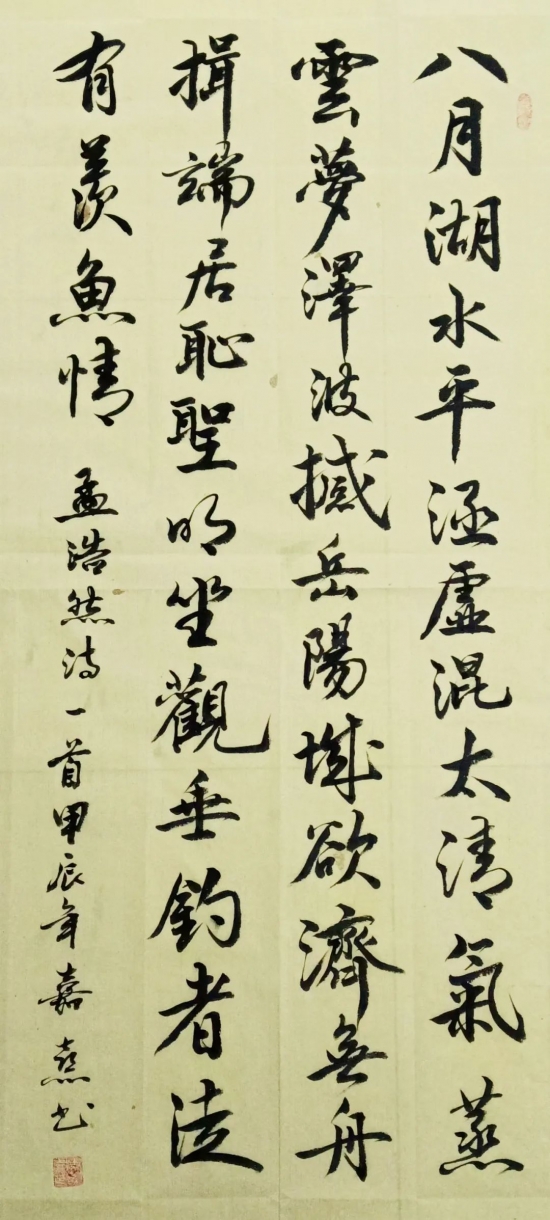 八月湖水平涵虛混太清氣蒸
雲夢澤波撼岳陽城欲濟無舟
楫端居恥聖明坐觀垂釣者徒
有羨魚情 孟浩然詩一首甲辰年嘉書